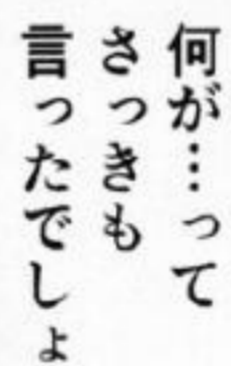 何が…って
さっきも
言ったでしょ